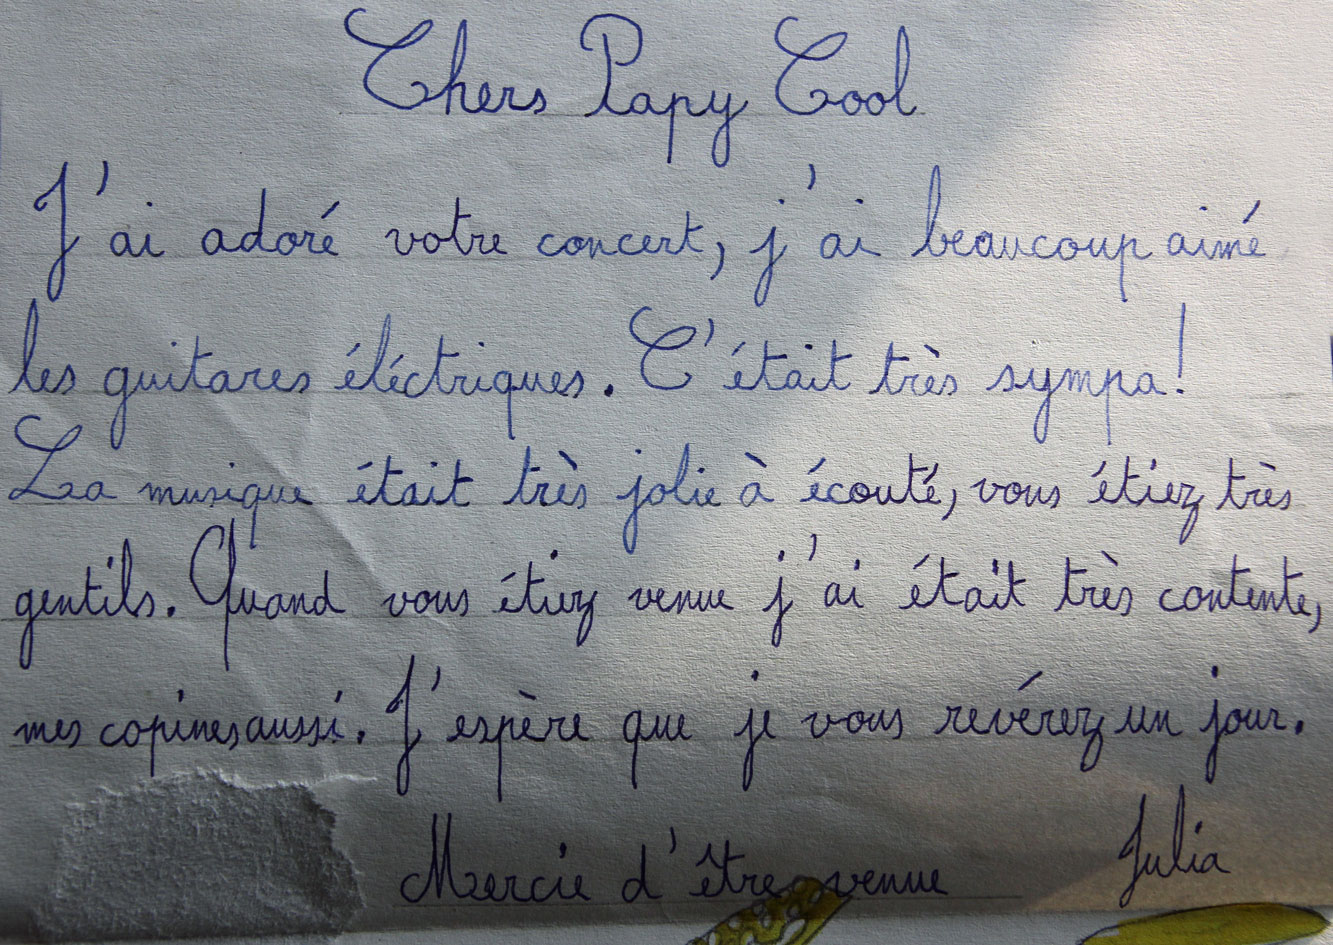 Chers Papy Cool
J'ai adoré votre concert, j'ai beaucoup aimé
les guitares éléctriques. C'était très sympa!
La musique était très jolie à écouté, vous étiez très
gentils. Quand vous étiez venue j'ai était très contente,
mes copines aussi. J'espère que je vous revérez un jour.
Mercie d'être venue Julia